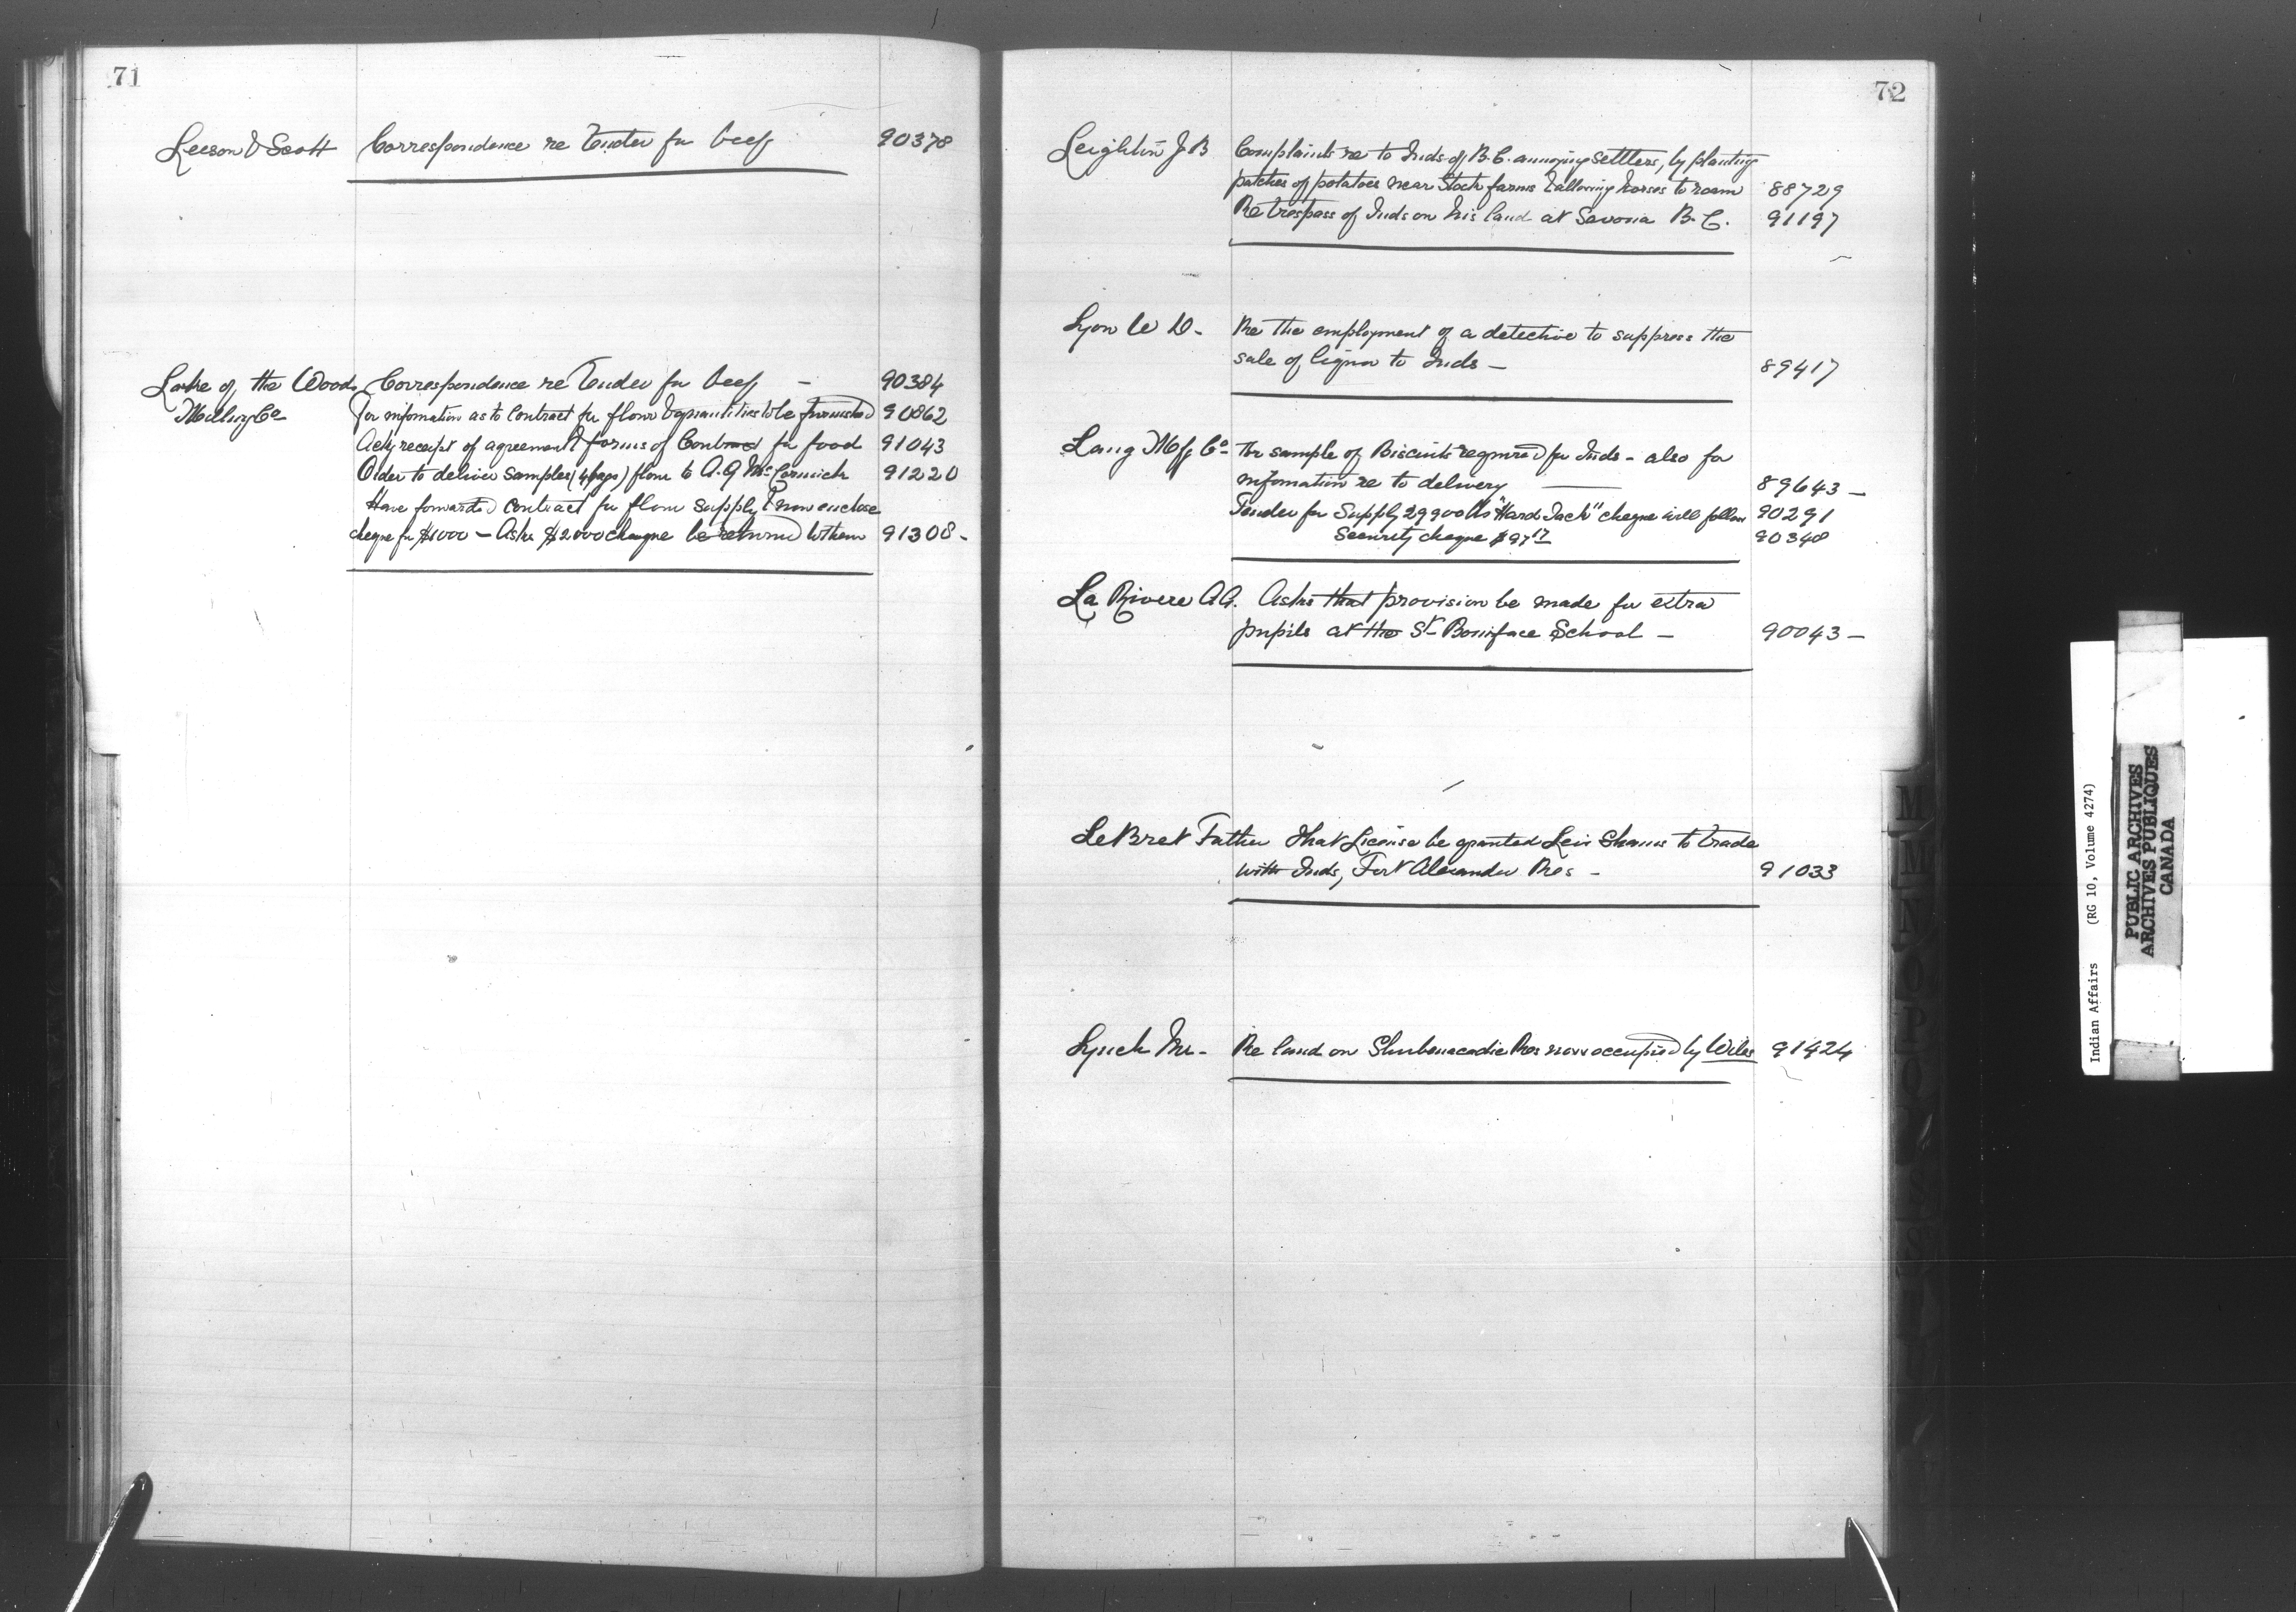 71
Leeson & Scott Correspondence re Tender for beef 90378
Lake of the Woods Correspondence re Tender for beef - 90384
Milling Co For information as to Contract for flour & quantities to be furnished 90862
Ackg receipt of agreement & forms of Contract for food 91043
Order to deliver samples (4 bags) flour to A. G McCormick 91220
Have forwarded contract for flour supply & now enclose
cheque for $1000 - Asks $2000 cheque be returned to them 91308 -
72
Leighton J B Complaints re to Inds of B.C. annoying settlers, by planting
patches of potatoes near Stock farms & allowing horses to roam 88729
Re trespass of Inds on his land at Savona B. C. 91197
Lyon W D - Re the employment of a detective to suppress the
sale of liquor to Inds - 89417
Lang Mfg Co - For sample of Biscuits required for Inds - also for
information re to delivery 89643 -
Tender for Supply 29900 lbs "Hard Tack" cheque will follow 90291
Security cheque $97 17 90348
La Rivere A. A. Asks that provision be made for extra
pupils at the St Boniface School - 90043 -
LeBret Father That License be granted to trade
with Inds, Fort Alexander Res - 91033
Lynch Mr - Re land on Shubenacadie Res now occupied by Wiles 91424
M
M
N
O
P
Indian Affairs (RG 10, Volume 4274)
PUBLIC ARCHIVES
ARCHIVES PUBLIQUES
CANADA